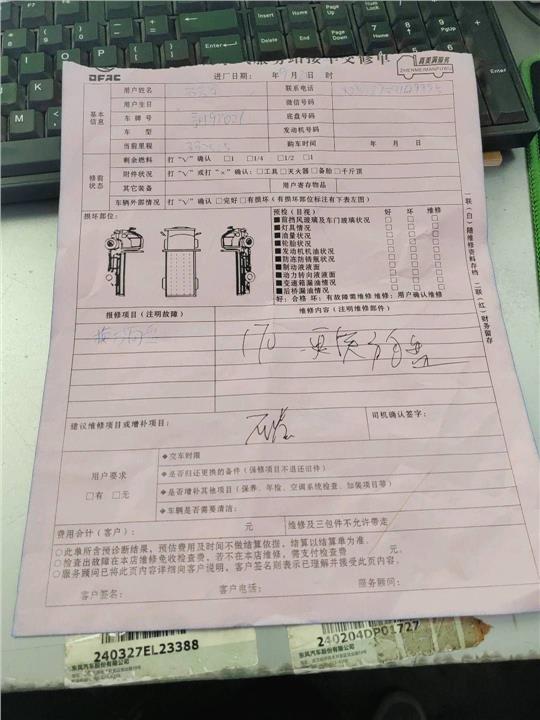 DFAC
服务站接车交修单
真美满服务
ZHENMEIMANFUWU
进厂日期: 年 9 月 日 时
基本信息
用户姓名 联系电话
用户生日 微信号码
车牌号 底盘号码
车型 发动机号码
当前里程 购车时间 年 月 日
修前状态
剩余燃料 打“√”确认 □1 □1/4 □1/2 □1
附件状况 打“√”或打“×”确认:□工具□灭火器□备胎□千斤顶
其它装备 用户寄存物品
车辆外部情况 打“√”确认□完好□有损坏(有损坏部位标注有下表左图)
损坏部位:
预检(目视) 好 坏 维修
■前挡风玻璃及车门玻璃状况 □ □ □
■灯具情况 □ □ □
■油量状况 □ □ □
■轮胎状况 □ □ □
■发动机机油状况 □ □ □
■防冻防锈瓶状况 □ □ □
■制动液液面 □ □ □
■动力转向液液面 □ □ □
■变速箱漏油情况 □ □ □
■后桥漏油情况 □ □ □
好:合格 坏:有故障需维修 维修:用户确认维修
一联(白)随维修资料存档 二联(红)财务留存
报修项目(注明故障) 维修内容(注明维修部件)
170 更换分离盘
建议维修项目或增补项目: 司机确认签字:
用户要求
□有 □无
◆交车时限
◆是否归还更换的备件(保修项目不退还旧件)
◆是否增补其他项目(保养、年检、空调系统检查、加装项目等)
◆车辆是否需要清洁:
费用合计(客户): 元 维修及三包件不允许带走
○此单所含预诊断结果,预估费用及时间不做结算依据,结算以结算单为准。
○检查出故障在本店维修免收检查费,若不在本店维修,需支付检查费 元。
○服务顾问已将此页内容详细向客户说明,客户签名则表示已理解并接受此页内容。
客户签名: 客户电话: 服务顾问:
240327EL23388
东风汽车股份有限公司
240204DP01727
东风汽车股份有限公司